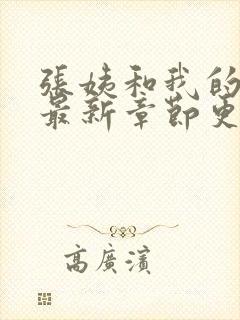 張姨和我的
最新章節更
高廣濱